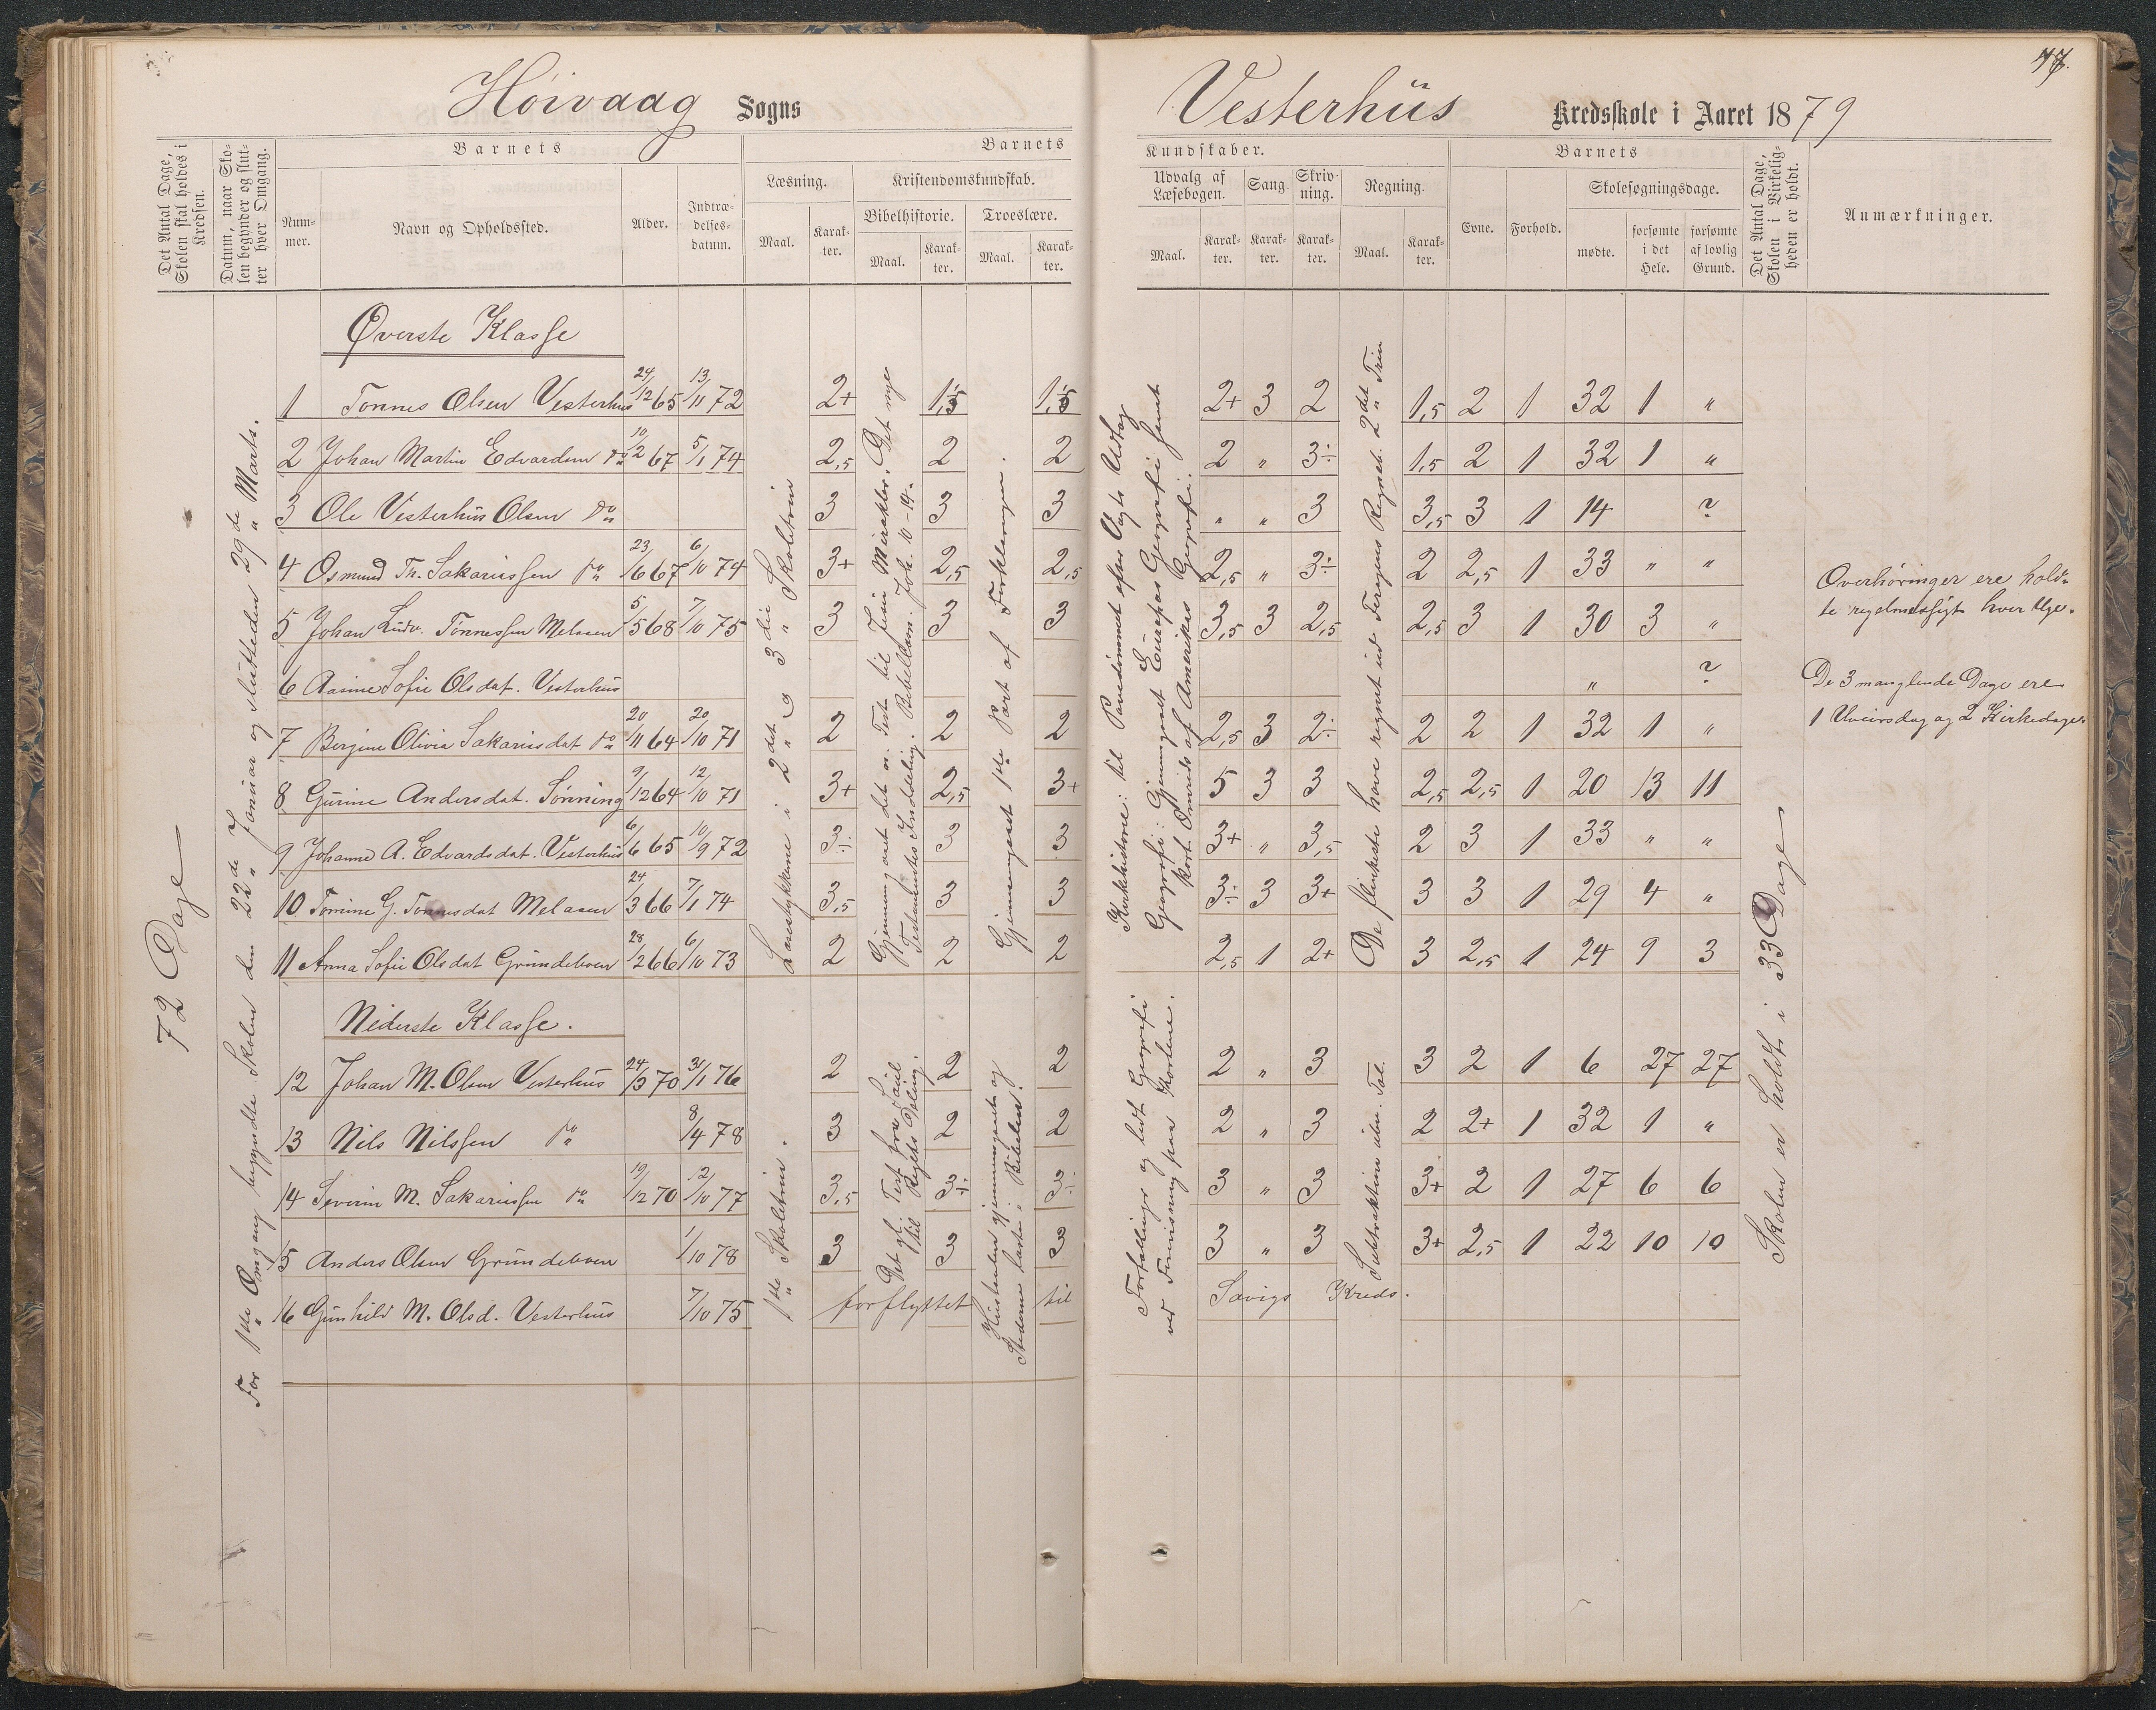 77.
Höivaag Sogns
Vesterhüs Kredsskole i Aaret 1879
Det Antal Dage, Skolen skal holdes i Kredsen.
Datum, naar Skolen begynder og slutter hver Omgang.
Barnets
Nummer.
Navn og Opholdssted.
Alder.
Indtrædelsesdatum.
Barnets
Læsning.
Maal.
Karakter.
Kristendomskundskab.
Bibelhistorie.
Maal.
Karakter.
Troeslære.
Maal.
Karakter.
Kundskaber.
Udvalg af Læsebogen.
Maal.
Karakter.
Sang.
Karakter.
Skrivning.
Karakter.
Regning.
Maal.
Karakter.
Barnets
Evne.
Forhold.
Skolesøgningsdage.
mødte.
forsømte i det Hele.
forsømte af lovlig Grund.
Det Antal Dage, Skolen i Virkeligheden er holdt.
Anmærkninger.
72 Dage
For 1ste Omgang begyndte Skolen den 22de Januar og sluttedes 29de Marts.
Øverste Klasse
1 Tonnes Olsen Vesterhus 24/12 65 13/11 72 2+ 1,5 1,5 2+ 3 2 1,5 2 1 32 1 "
2 Johan Martin Edvardsen do 10/2 67 5/1 74 2,5 2 2 2 " 3÷ 1,5 2 1 32 1 "
3 Ole Vesterhus Olsen do 3 3 3 " " 3 3,5 3 1 14 ?
4 Osmund Th. Sakariassen do 23/6 67 6/10 74 3+ 2,5 2,5 2,5 " 3÷ 2 2,5 1 33 " "
5 Johan Ludv. Tønnessen Melaaen 5/5 68 7/10 75 3 3 3 3,5 3 2,5 2,5 3 1 30 3 "
6 Aasine Sofie Olsdat. Vesterhus " ?
7 Bergine Olivia Sakariasdat do 20/11 64 20/10 71 2 2 2 2,5 3 2÷ 2 2 1 32 1 "
8 Gurine Andersdat. Sønning 9/12 64 12/10 71 3+ 2,5 3+ 5 3 3 2,5 2,5 1 20 13 11
9 Johanne A. Edvardsdat. Vesterhus 6/6 65 10/9 72 3÷ 3 3 3+ " 3,5 2 3 1 33 " "
10 Tomine G. Tønnesdat Melaaen 24/3 66 7/1 74 3,5 3 3 3÷ 3 3+ 3 3 1 29 4 "
11 Anna Sofie Olsdat Grundeboen 28/2 66 6/10 73 2 2 2 2,5 1 2+ 3 2,5 1 24 9 3
Læsestykkerne i 2det og 3die Skoletrin
Gjennemgaaet det n. Test. til Jesu Mirakler. Det nye Testamentes Inddeling. Bibellæsn.: Joh. 10-14.
Gjennemgaaet 1ste Part af Forklaringen.
Kirkehistorie: til Pavedømmet efter Vogts Udtog
Geografi: Gjennemgaaet Europas Geografi samt kort Omrids af Amerikas Geografi.
De flinkeste have regnet ud Feragens Regneb. 2det Trin
Overhøringer ere holdte regelmæssigt hver Uge.
De 3 manglende Dage ere 1 Uveirsdag og 2 Kirkedage.
Skolen er holdt i 33 Dage
Nederste Klasse.
12 Johan M. Olsen Vesterhus 24/3 70 31/1 76 2 2 2 2 " 3 3 2 1 6 27 27
13 Nils Nilssen do 8/4 78 3 2 2 2 " 3 2 2+ 1 32 1 "
14 Severin M. Sakariassen do 19/12 70 12/10 77 3,5 3÷ 3÷ 3 " 3 3+ 2 1 27 6 6
15 Anders Olsen Grundeboen 1/10 78 3 3 3 3 " 3 3+ 2,5 1 22 10 10
16 Gunhild M. Olsd. Vesterhus 7/10 75 forflyttet til Savigs Kreds.
1ste Skoletrin.
Det gl. Test. fra Saul til Rigets Deling.
Hustavlen gjennemgaaet og Stederne læste i Bibelen.
Fortællinger og lidt Geografi ved Fremvisning paa Kortene.
Subtraktion uben. Tal.